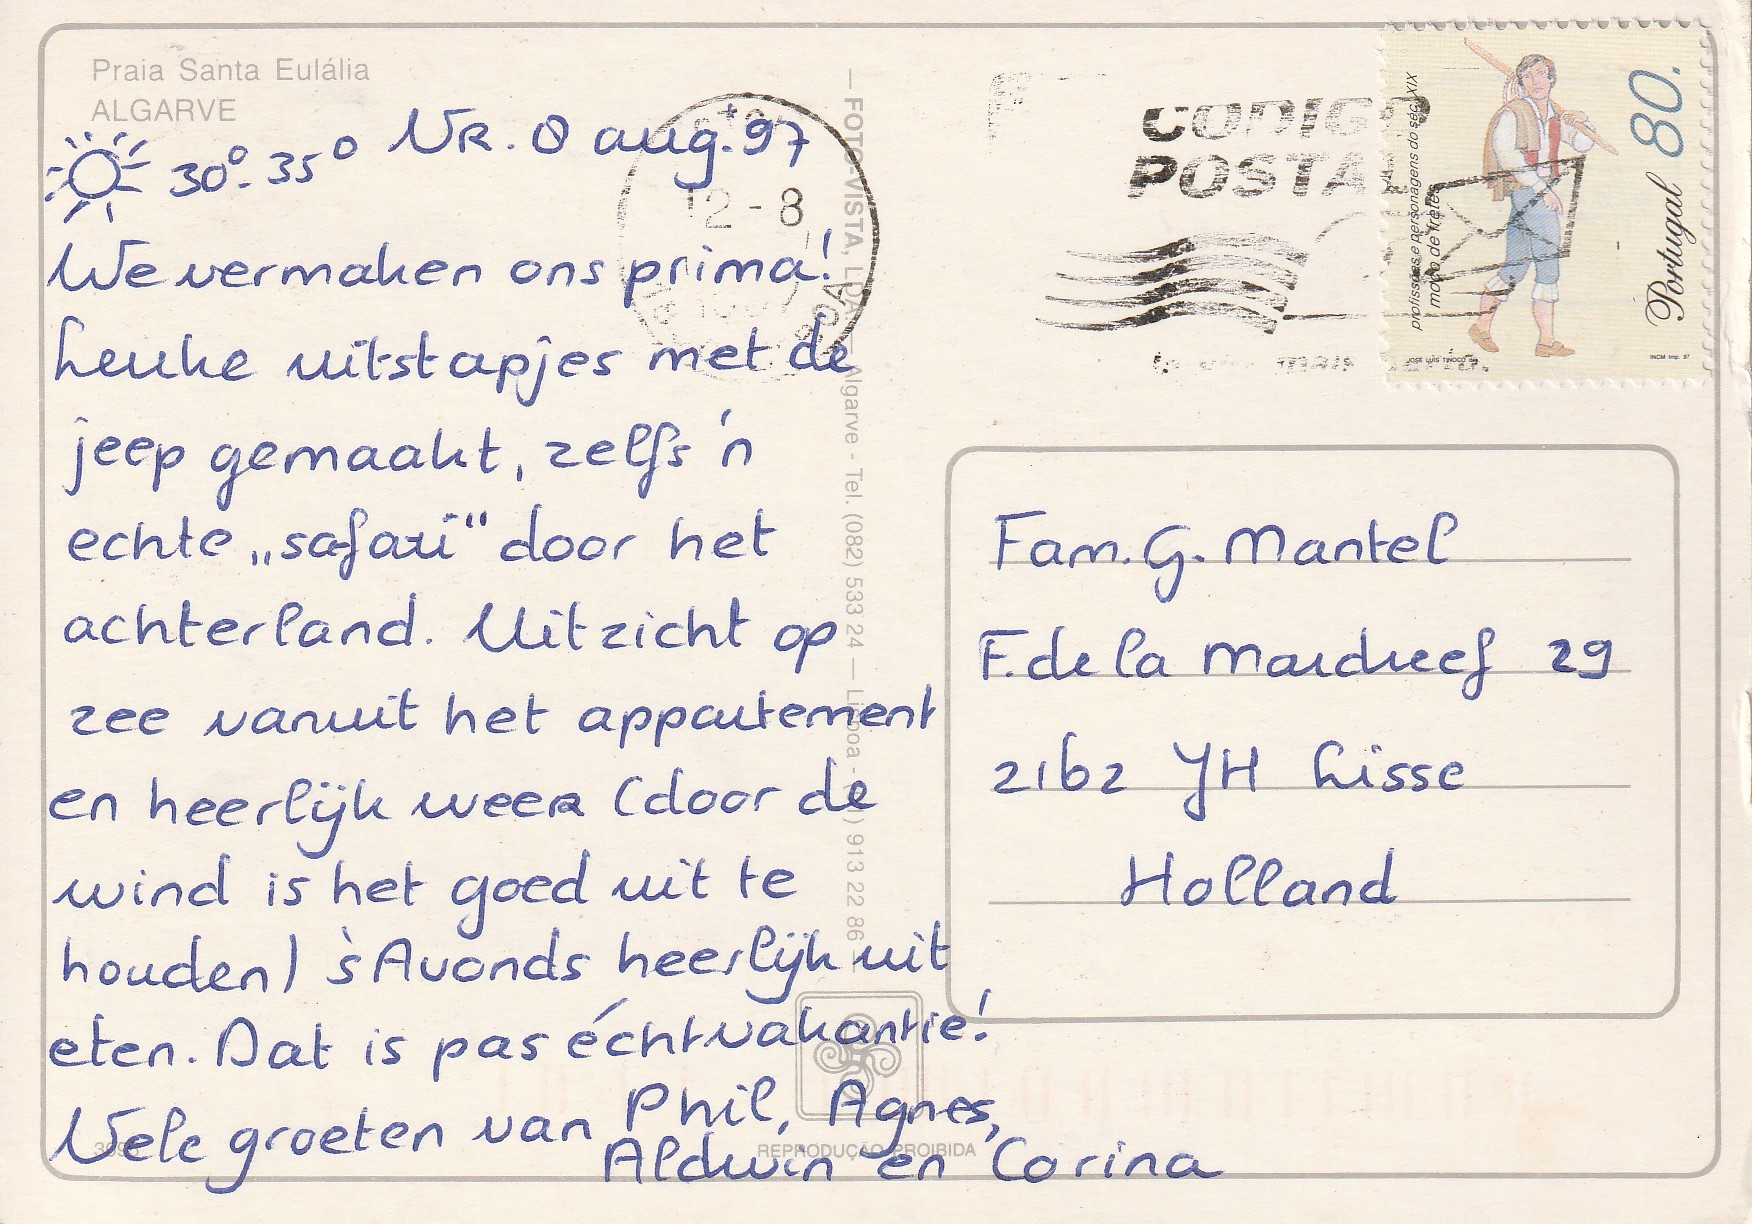 Praia Santa Eulália
ALGARVE
30° - 35° VR. 8 aug. '97
We vermaken ons prima!
Leuke uitstapjes met de
jeep gemaakt, zelfs 'n
echte „safari" door het
achterland. Uitzicht op
zee vanuit het appartement
en heerlijk weer (door de
wind is het goed uit te
houden) 's Avonds heerlijk uit
eten. Dat is pas écht vakantie!
Vele groeten van Phil, Agnes,
Aldwin en Corina
REPRODUÇÃO PROIBIDA
— FOTO-VISTA, LDA. Algarve - Tel. (082) 533 24 — Lisboa - 913 22 86
12-8
CODIGO
POSTAL
profissões e personagens do séc. XIX
moço de fretes
Portugal 80.
JOSÉ LUIS TINOCO
INCM Imp. 97
Fam. G. Mantel
F. de la Mardreef 29
2162 JH Lisse
Holland